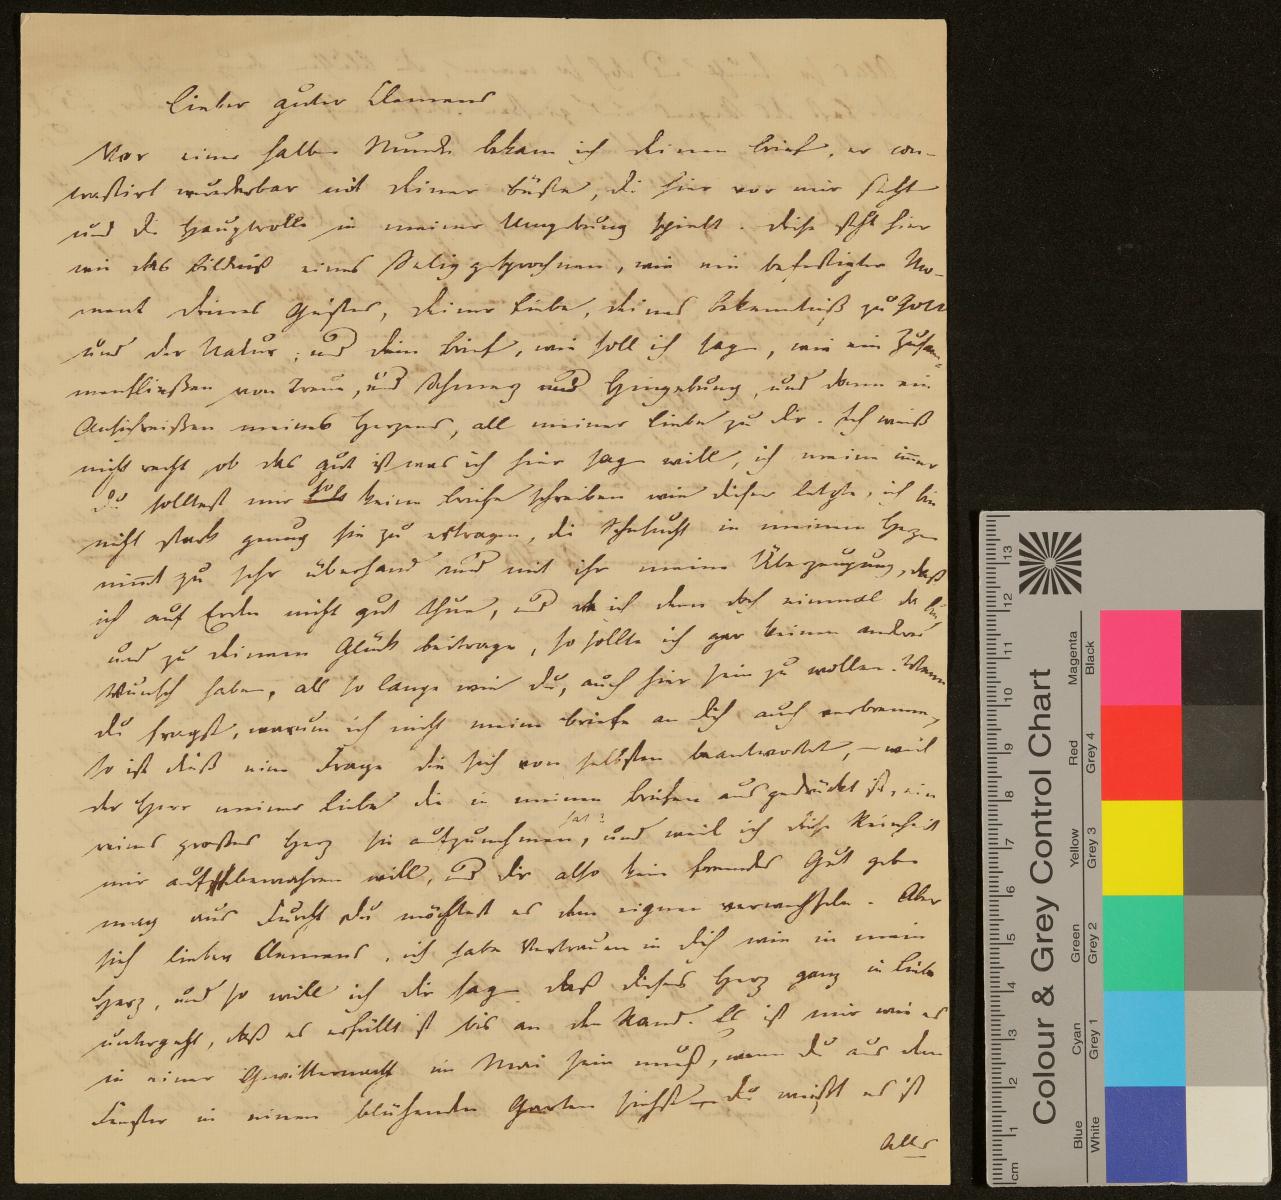 Lieber guter Clemens
Vor einer halben Stunde bekam ich deinen Brief, er con-
trastirt wunderbar mit deiner Büste, die hier vor mir steht
und die Hauptrolle in meiner Umgebung spielt. diese steht hier
wie das Bildniß eines Seliggesprochnen, wie ein befestigter Mo-
ment deines Geistes, deiner Liebe, deines Bekenntniß zu Gott
und der Natur; und dein Brief, wie soll ich sagen, wie ein Zusam-
menfließen von Treue, und Schmerz und Hingebung, und dann ein
Ansichreißen meines Herzens, all meiner Liebe zu dir. Ich weiß
nicht recht, ob das gut ist was ich hier sagen will, ich meine immer
du solltest mir keine Briefe schreiben wie dieser letzte, ich bin
nicht stark genug sie zu ertragen, die Sehnsucht in meinem Herzen
nimmt zu sehr überhand und mit ihr meine Überzeugung, daß
ich auf Erden nicht gut thue, und da ich denn doch einmal da bin
und zu deinem Glück beitrage, so sollte ich gar keinen andren
Wunsch haben, als so lange wie du, auch hier sein zu wollen. Wenn
du fragst, warum ich nicht meine Briefe an dich auch verbrenne,
so ist dieß eine Frage die sich von selbsten beantwortet, – weil
der Herr meiner Liebe die in meinen Briefen ausgedrückt ist, ein
reines großes Herz sie aufzunehmen hat, und weil ich diese Reinheit
mir aufbewahren will, und dir also kein fremdes Gut geben
mag aus Furcht du möchtest es dem eignen verwechseln. Aber
sieh lieber Clemens, ich habe Vertrauen in dich wie in mein
Herz, und so will ich dir sagen daß dieses Herz ganz in Liebe
untergeht, daß es erfüllt ist bis an den Rand. Es ist mir wie es
in einer Gewitternacht im Mai sein muß, wenn du aus dem
Fenster in einen blühenden Garten siehst – du weißt es ist
Alles
Colour & Grey Control Chart
Blue Cyan Green Yellow Red Magenta
White Grey 1 Grey 2 Grey 3 Grey 4 Black
cm 1 2 3 4 5 6 7 8 9 10 11 12 13